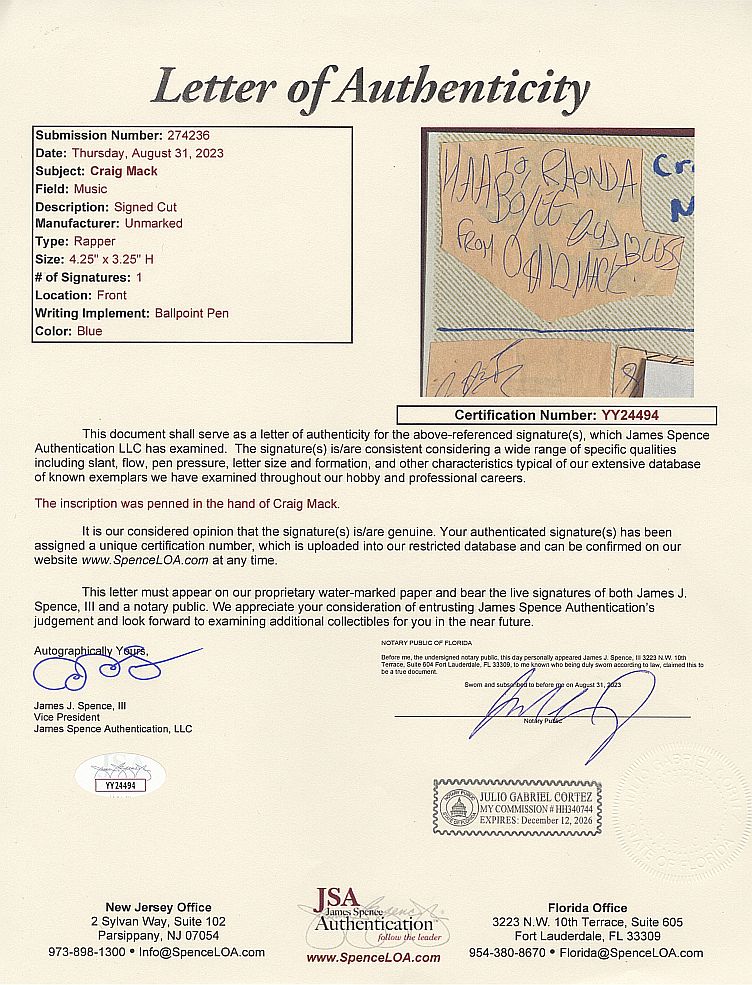 Letter of Authenticity
Submission Number: 274236
Date: Thursday, August 31, 2023
Subject: Craig Mack
Field: Music
Description: Signed Cut
Manufacturer: Unmarked
Type: Rapper
Size: 4.25" x 3.25" H
# of Signatures: 1
Location: Front
Writing Implement: Ballpoint Pen
Color: Blue
To RHONDA
FROM
MACK
Certification Number: YY24494
This document shall serve as a letter of authenticity for the above-referenced signature(s), which James Spence
Authentication LLC has examined. The signature(s) is/are consistent considering a wide range of specific qualities
including slant, flow, pen pressure, letter size and formation, and other characteristics typical of our extensive database
of known exemplars we have examined throughout our hobby and professional careers.
The inscription was penned in the hand of Craig Mack.
It is our considered opinion that the signature(s) is/are genuine. Your authenticated signature(s) has been
assigned a unique certification number, which is uploaded into our restricted database and can be confirmed on our
website www.SpenceLOA.com at any time.
This letter must appear on our proprietary water-marked paper and bear the live signatures of both James J.
Spence, III and a notary public. We appreciate your consideration of entrusting James Spence Authentication's
judgement and look forward to examining additional collectibles for you in the near future.
Autographically Yours,
James J. Spence, III
Vice President
James Spence Authentication, LLC
YY24494
NOTARY PUBLIC OF FLORIDA
Before me, the undersigned notary public, this day personally appeared James J. Spence, III 3223 N.W. 10th
Terrace, Suite 604 Fort Lauderdale, FL 33309, to me known who being duly sworn according to law, claimed this to
be a true document.
Sworn and subscribed to before me on August 31, 2023
Notary Public
NOTARY PUBLIC
STATE OF FLORIDA
JULIO GABRIEL CORTEZ
MY COMMISSION # HH340744
EXPIRES: December 12, 2026
New Jersey Office
2 Sylvan Way, Suite 102
Parsippany, NJ 07054
973-898-1300 • Info@SpenceLOA.com
JSA
James Spence
Authentication
follow the leader
www.SpenceLOA.com
Florida Office
3223 N.W. 10th Terrace, Suite 605
Fort Lauderdale, FL 33309
954-380-8670 • Florida@SpenceLOA.com